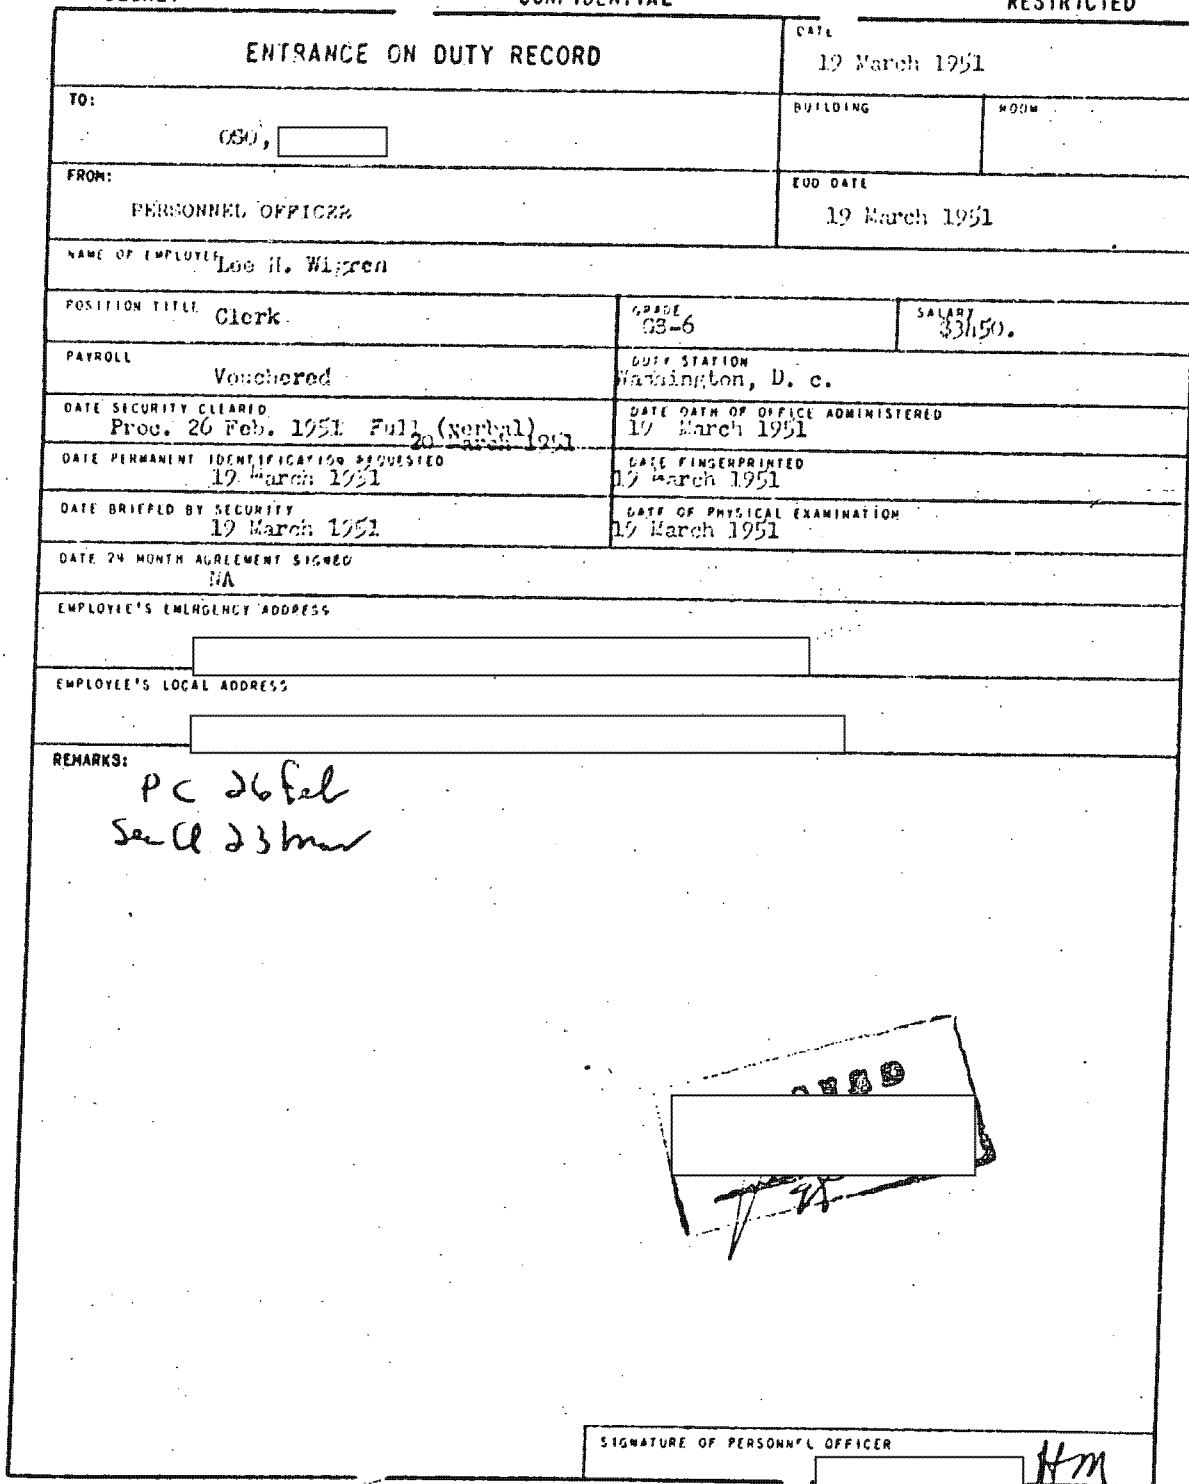 CONFIDENTIAL
RESTRICTED
ENTRANCE ON DUTY RECORD
DATE
19 March 1951
TO:
OSO,
BUILDING
ROOM
FROM:
PERSONNEL OFFICER
EOD DATE
19 March 1951
NAME OF EMPLOYEE Lee H. Wigren
POSITION TITLE Clerk
GRADE
GS-6
SALARY
$3450.
PAYROLL
Vouchered
DUTY STATION
Washington, D. c.
DATE SECURITY CLEARED
Proc. 26 Feb. 1951 Full (verbal)
20 March 1951
DATE OATH OF OFFICE ADMINISTERED
19 March 1951
DATE PERMANENT IDENTIFICATION REQUESTED
19 March 1951
DATE FINGERPRINTED
19 March 1951
DATE BRIEFED BY SECURITY
19 March 1951
DATE OF PHYSICAL EXAMINATION
19 March 1951
DATE 24 MONTH AGREEMENT SIGNED
NA
EMPLOYEE'S EMERGENCY ADDRESS
EMPLOYEE'S LOCAL ADDRESS
REMARKS:
PC 26 Feb
Sec Cl 23 mar
SIGNATURE OF PERSONNEL OFFICER
HM